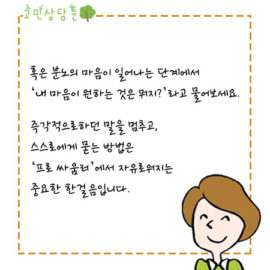 호밀상담톡
혹은 분노의 마음이 일어나는 단계에서
'내 마음이 원하는 것은 뭐지?'라고 물어보세요.
즉각적으로하던 말을 멈추고,
스스로에게 묻는 방법은
'프로 싸움러'에서 자유로워지는
중요한 한걸음입니다.